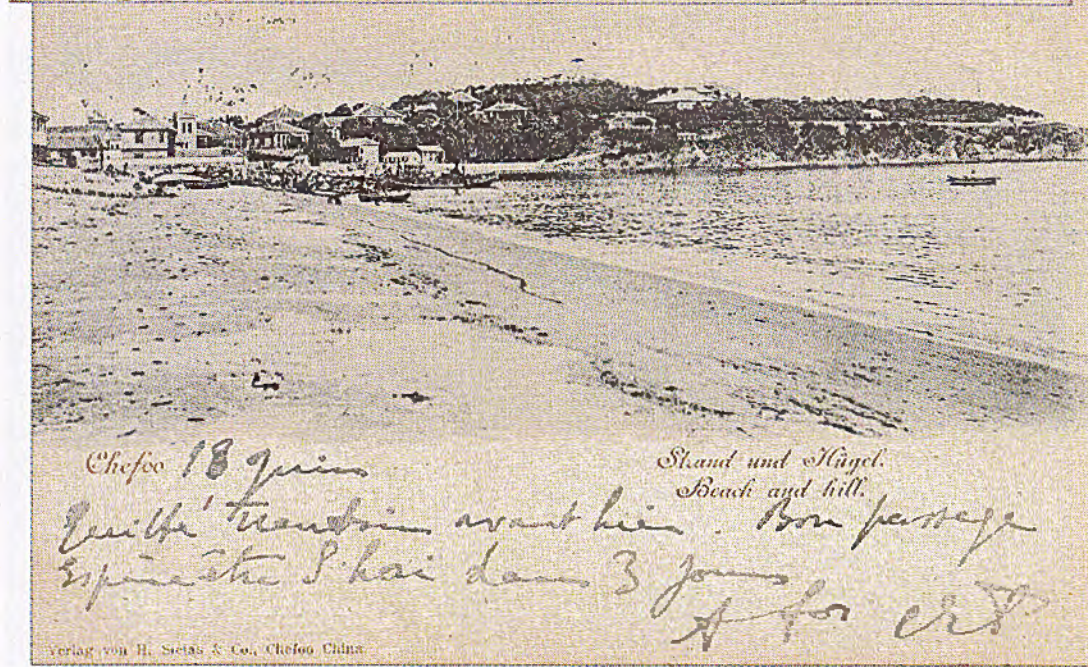 Chefoo 18 Juin
Strand und Hügel.
Beach and hill.
Quitté Tientsin avant hier. Bon passage
Espère être S'hai dans 3 jours
Verlag von H. Sietas & Co., Chefoo China